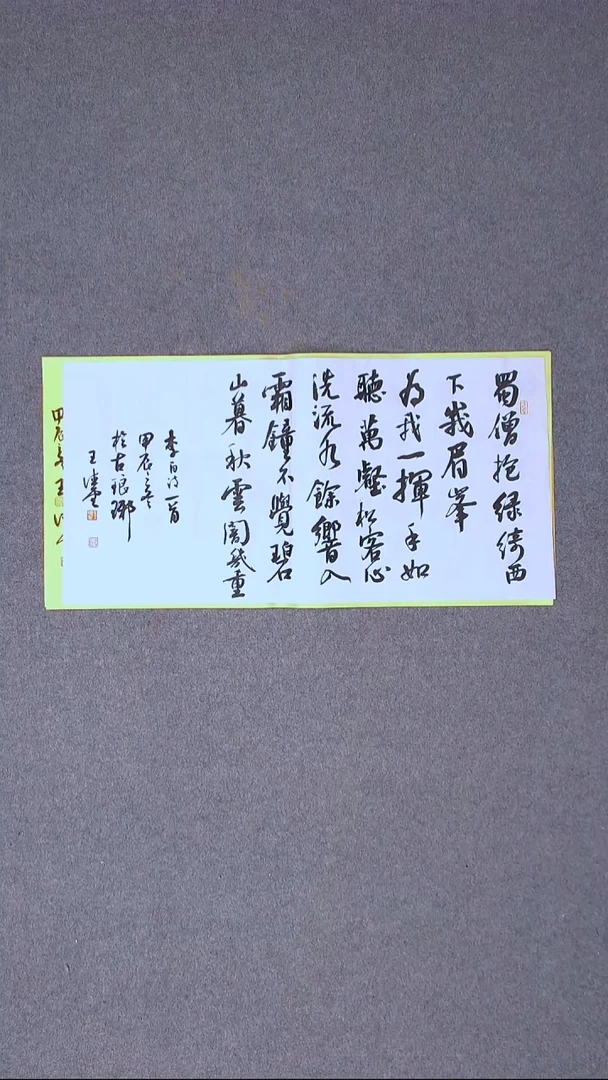 蜀僧抱绿綺西
下峩眉峯
為我一揮手如
聽萬壑松客心
洗流水餘響入
霜鐘不覺碧
山暮秋雲闇幾重
李白诗一首
甲辰之冬
於古琅琊
王
甲辰
王